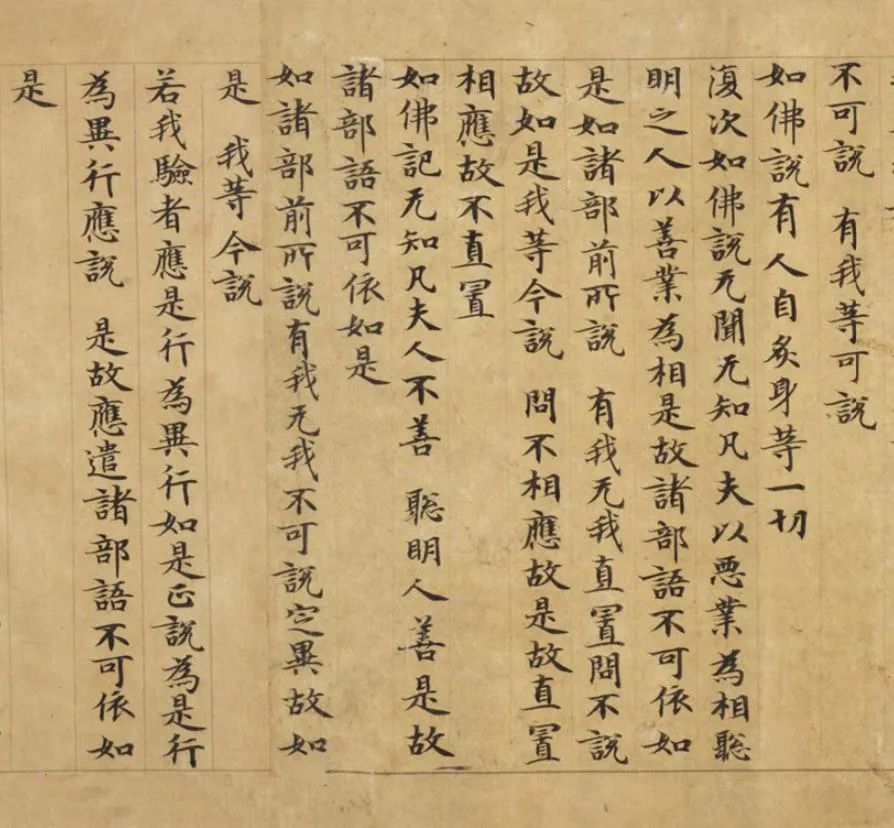 不可說　有我等可說
如佛說有人自炙身等一切
復次如佛說无聞无知凡夫以惡業為相聡
明之人以善業為相是故諸部語不可依如
是如諸部前所說　有我无我直置問不說
故如是我等今說　問不相應故是故直置
相應故不直置
如佛記无知凡夫人不善　聡明人善是故
諸部語不可依如是
如諸部前所說有我无我不可說定異故如
是　我等今說
若我驗者應是行為異行如是正說為是行
為異行應說　是故應遣諸部語不可依如
是